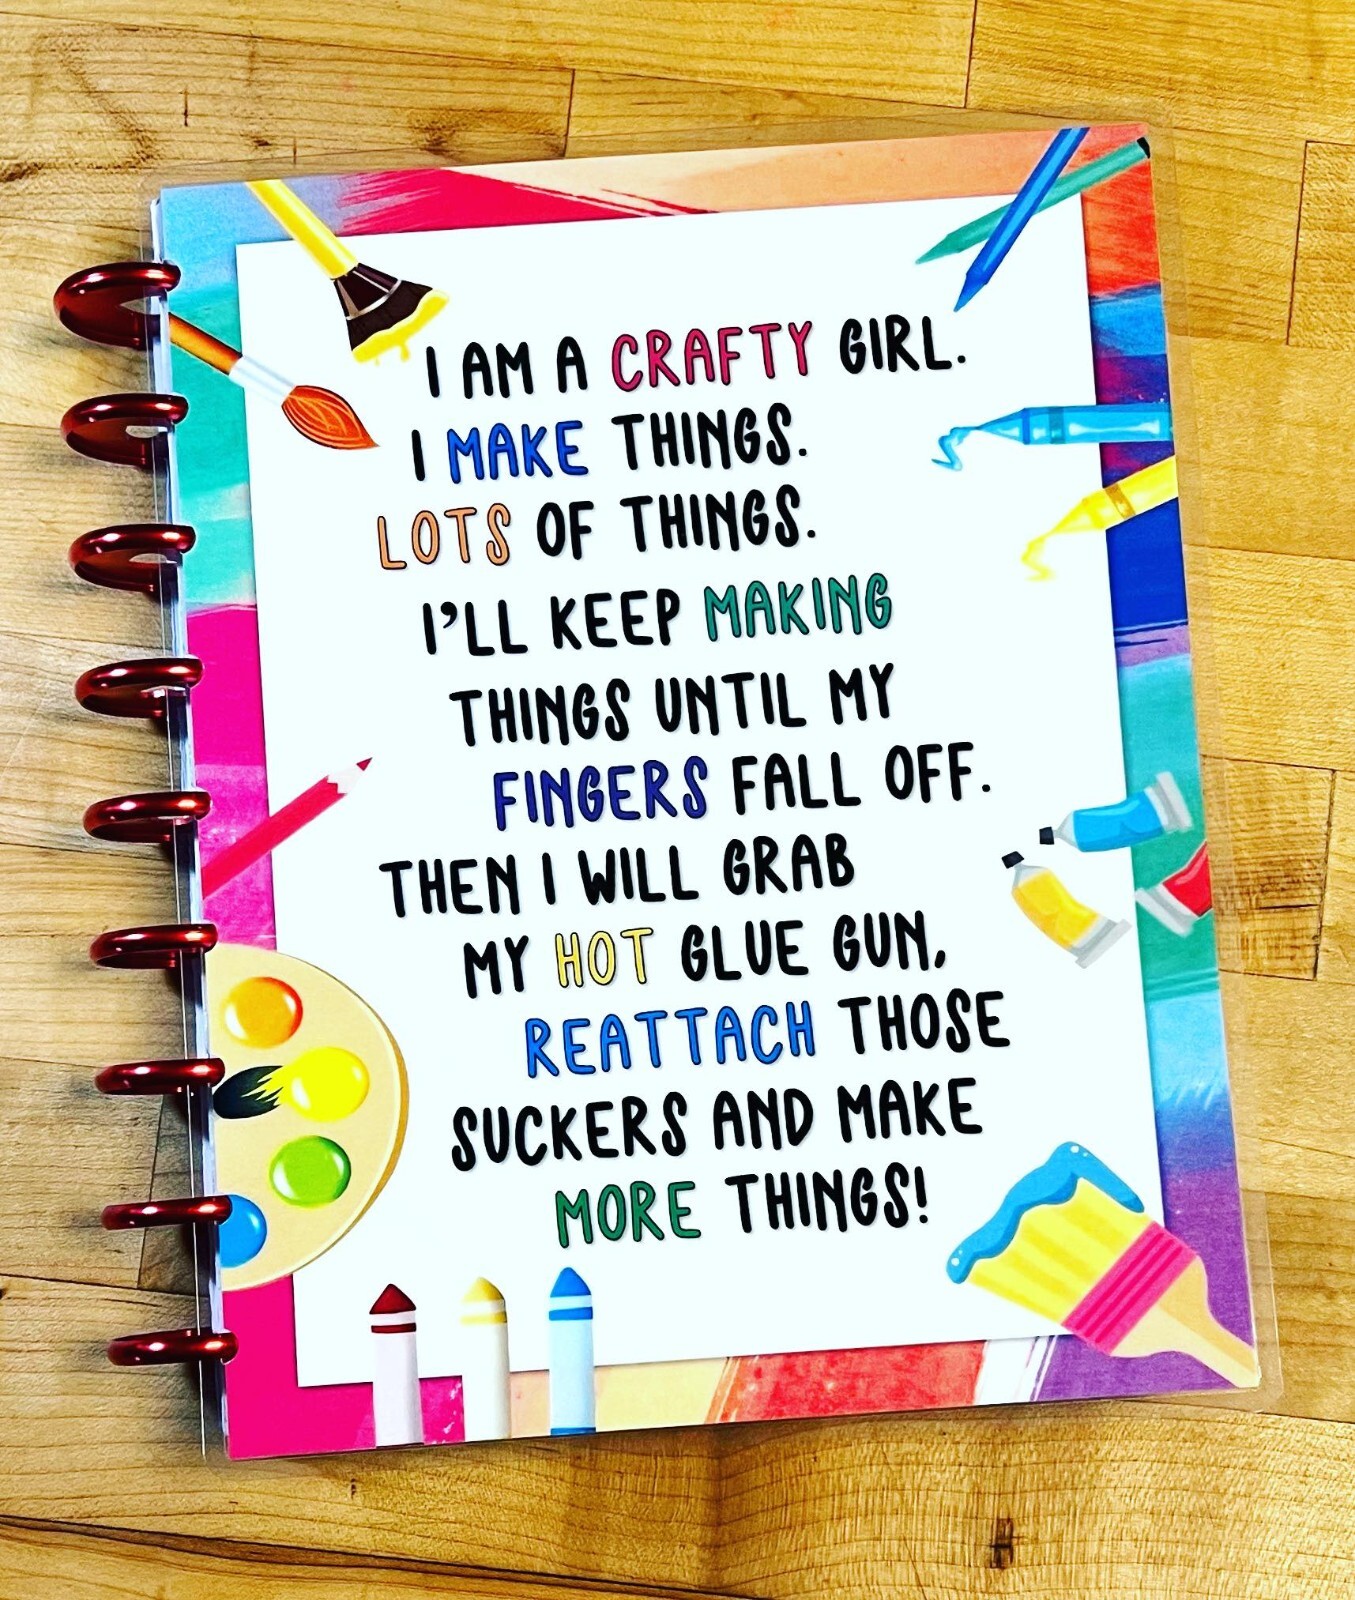 I AM A CRAFTY GIRL.
I MAKE THINGS.
LOTS OF THINGS.
I'LL KEEP MAKING
THINGS UNTIL MY
FINGERS FALL OFF.
THEN I WILL GRAB
MY HOT GLUE GUN,
REATTACH THOSE
SUCKERS AND MAKE
MORE THINGS!